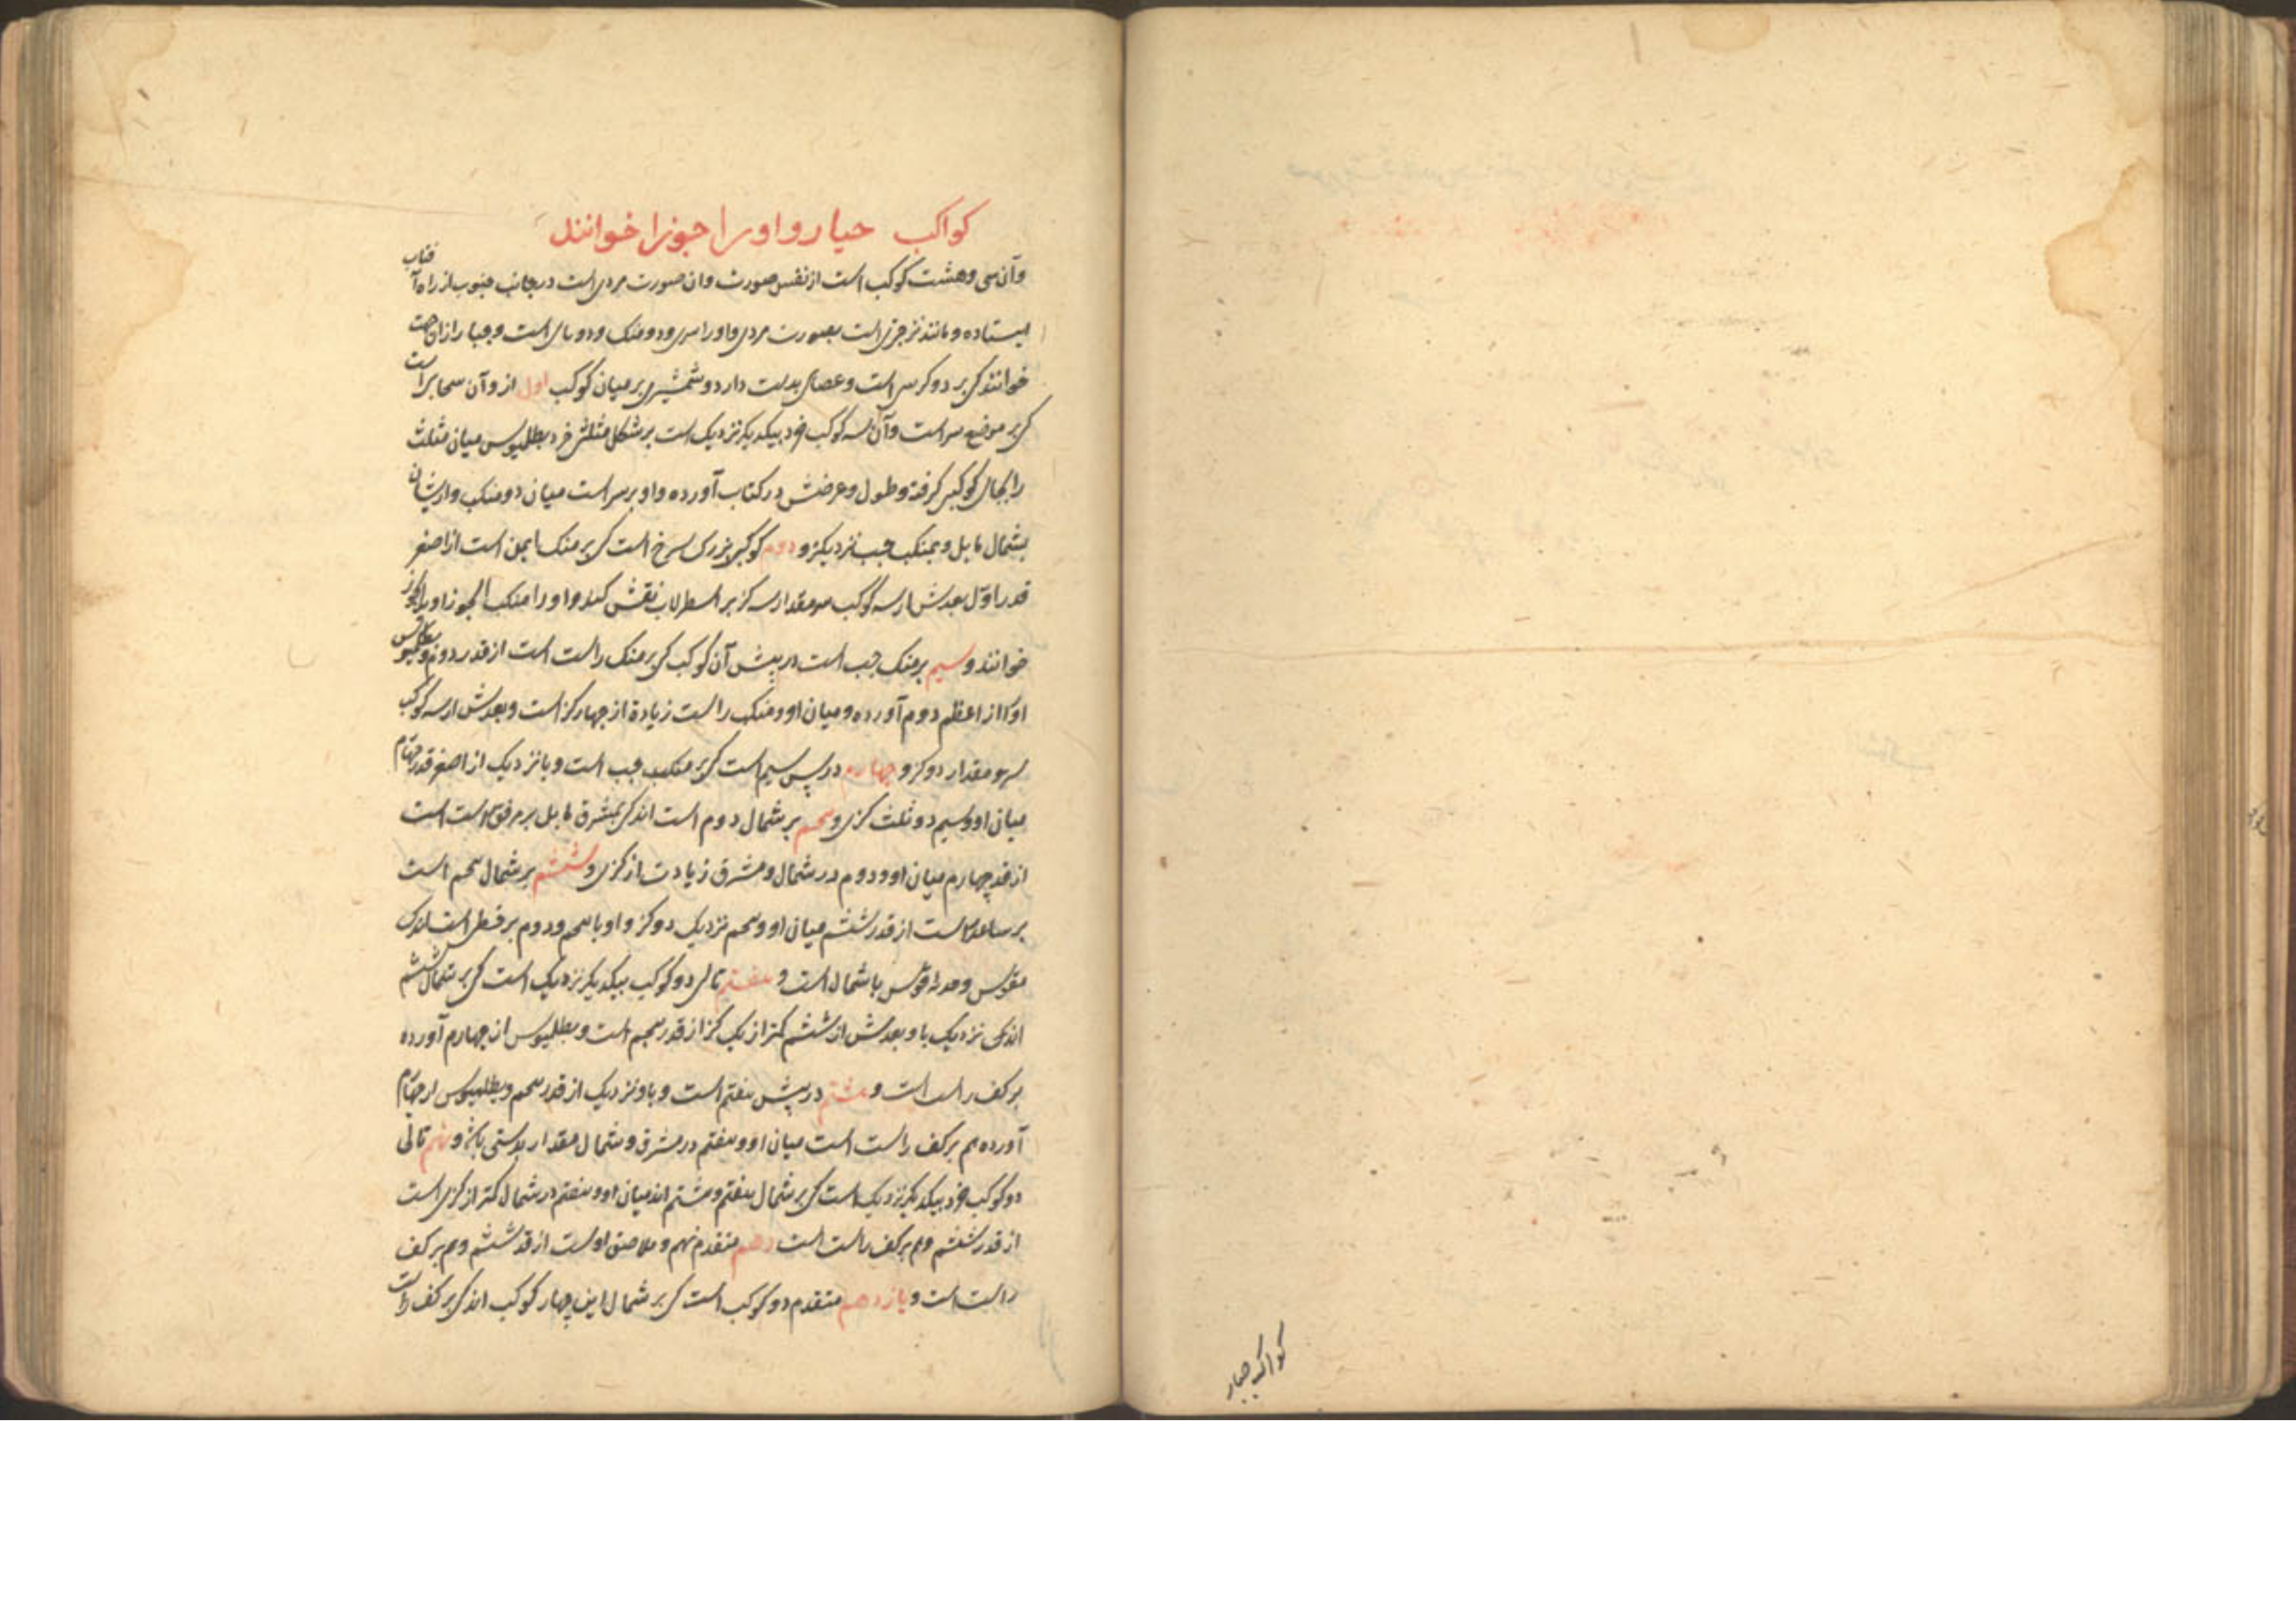 کواکب جبار و او را جوزا خوانند
وآن سی وهشت کوکب است از نفس صورت وان صورت مردی است در جانب جنوب از راه آفتاب
ایستاده و مانند ترجزی است بصورت مردی واورا سری ودو منکب ودو پای است وجبار ازان جهت
خوانند کی بر دو کرسی است وعصای بدست دارد وشمشیری بر میان کوکب اول ازو آن سحابی است
کی بر موضع سر است وآن سه کوکب خرد بیکدیکر نزدیک است بر شکل مثلثی خرد بطلمیوس میان مثلث
را بجای کوکبی کرفته وطول وعرضش در کتاب آورده واو بر سر است میان دو منکب وازیشان
بشمال مایل وبمنکب چپ نزدیکتر و دوم کوکبی بزرک سرخ است کی بر منکب ایمن است از اصغر
قدر اول بعدش از سه کوکب سر مقدار سه کز بر اسطرلاب نقش کنند واورا منکب الجوزا وید الجوزا
خوانند و سیم بر منکب چپ است در پیش آن کوکب کی بر منکب راست است از قدر دوم وبطلمیوس
اورا از اعظم دوم آورده ومیان او ومنکب راست زیادة از چهار کز است وبعدش از سه کوکب
سر مقدار دو کز و چهارم در پس سیم است کی بر منکب چپ است وبا نزدیک از اصغر قدر چهارم
میان او وسیم دو ثلث کزی و پنجم بر شمال دوم است اندکی بمشرق مایل بر مرفق راست است
از قدر چهارم میان او ودوم در شمال ومشرق زیادت از کزی و ششم بر شمال پنجم است
بر ساعد راست از قدر ششم میان او وپنجم نزدیک دو کز واو با پنجم ودوم بر خطی است اندک
مقوس وحدبه قوس با شمال است و هفتم تالی دو کوکب بیکدیکر نزدیک است کی بر شمال ششم
اندکی نزدیک با وبعدش از ششم کمتر از یک کز از قدر پنجم است وبطلمیوس از چهارم آورده
بر کف راست است و هشتم در پیش هفتم است وباو نزدیک از قدر پنجم وبطلمیوس از چهارم
آورده هم بر کف راست است میان او وهفتم در مشرق وشمال مقدار بدستی باشد و نهم تالی
دو کوکب خرد بیکدیکر نزدیک است کی بر شمال هفتم وهشتم اند میان او وهفتم در شمال کمتر از کزی است
از قدر ششم وهم بر کف راست است دهم متقدم نهم وملاصق اوست از قدر ششم وهم بر کف
راست است و یازدهم متقدم دو کوکب است کی بر شمال این چهار کوکب اند کی بر کف راست
کواکب جبار